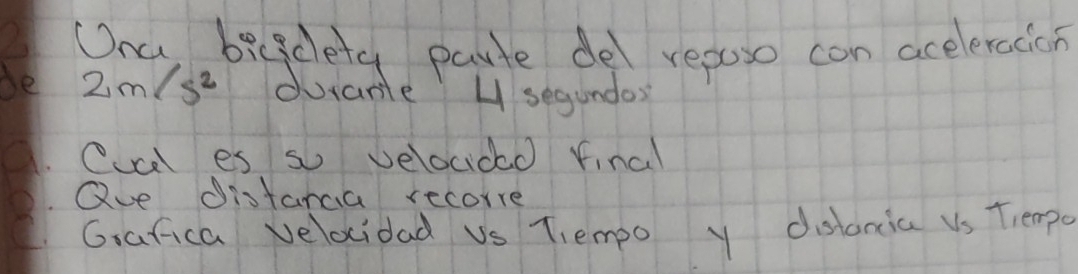 2 Una bicicleta parte del reposo con aceleración
de 2m/s² durante 4 segundos
A. Cual es su velocidad final
B. Que distancia recorre
C. Grafica velocidad vs Tiempo y distancia vs Tiempo